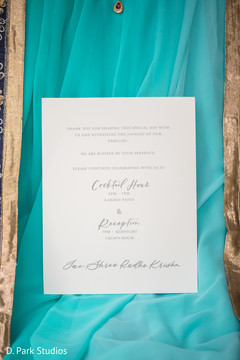 THANK YOU FOR SHARING THIS SPECIAL DAY WITH
US AND WITNESSING THE JOINING OF OUR
FAMILIES.
WE ARE BLESSED BY YOUR PRESENCE.
PLEASE CONTINUE CELEBRATING WITH US AT
Cocktail Hour
6PM - 7PM,
GARDEN PATIO
&
Reception
7PM - MIDNIGHT
Jai Shree Radhe Krishna
D. Park Studios